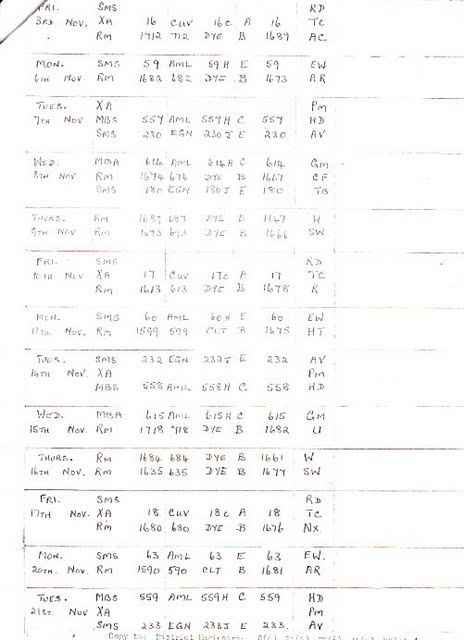 FRI. SMS RD
3RD NOV. XA 16 CUV 16C A 16 TC
RM 1712 712 DYE B 1689 AC
MON. SMS 59 AML 59H E 59 EW
6TH NOV RM 1682 682 DYE B 1673 AR
TUES. XA PM
7TH NOV MBS 557 AML 557H C 557 HD
SMS 230 EGN 230J E 230 AV
WED. MBA 614 AML 614H C 614 GM
8TH NOV RM 1674 674 DYE B 1667 CF
SMS 180 EGN 180J E 180 TB
THURS. RM 1687 687 DYE B W
9TH NOV RM 1693 693 DYE B 1666 SW
FRI. SMS RD
10TH NOV. XA 17 CUV 17C A 17 TC
RM 1613 613 DYE B 1678 R
MON. SMS 60 AML 60H E 60 EW
13TH NOV. RM 1599 599 CLT B 1675 HT
TUES. SMS 232 EGN 232J E 232 AV
14TH NOV. XA PM
MBS 558 AML 558H C 558 HD
WED. MBA 615 AML 615H C 615 GM
15TH NOV. RM 1718 718 DYE B 1682 U
THURS. RM 1684 684 DYE B 1661 W
16TH NOV. RM 1635 635 DYE B 1677 SW
FRI. SMS RD
17TH NOV. XA 18 CUV 18C A 18 TC
RM 1680 680 DYE B 1676 NX
MON. SMS 63 AML 63 E 63 EW.
20TH NOV. RM 1590 590 CLT B 1681 AR
TUES. MBS 559 AML 559H C 559 HD
21ST. NOV XA PM
SMS 233 EGN 233J E 233. AV
Copy to: District